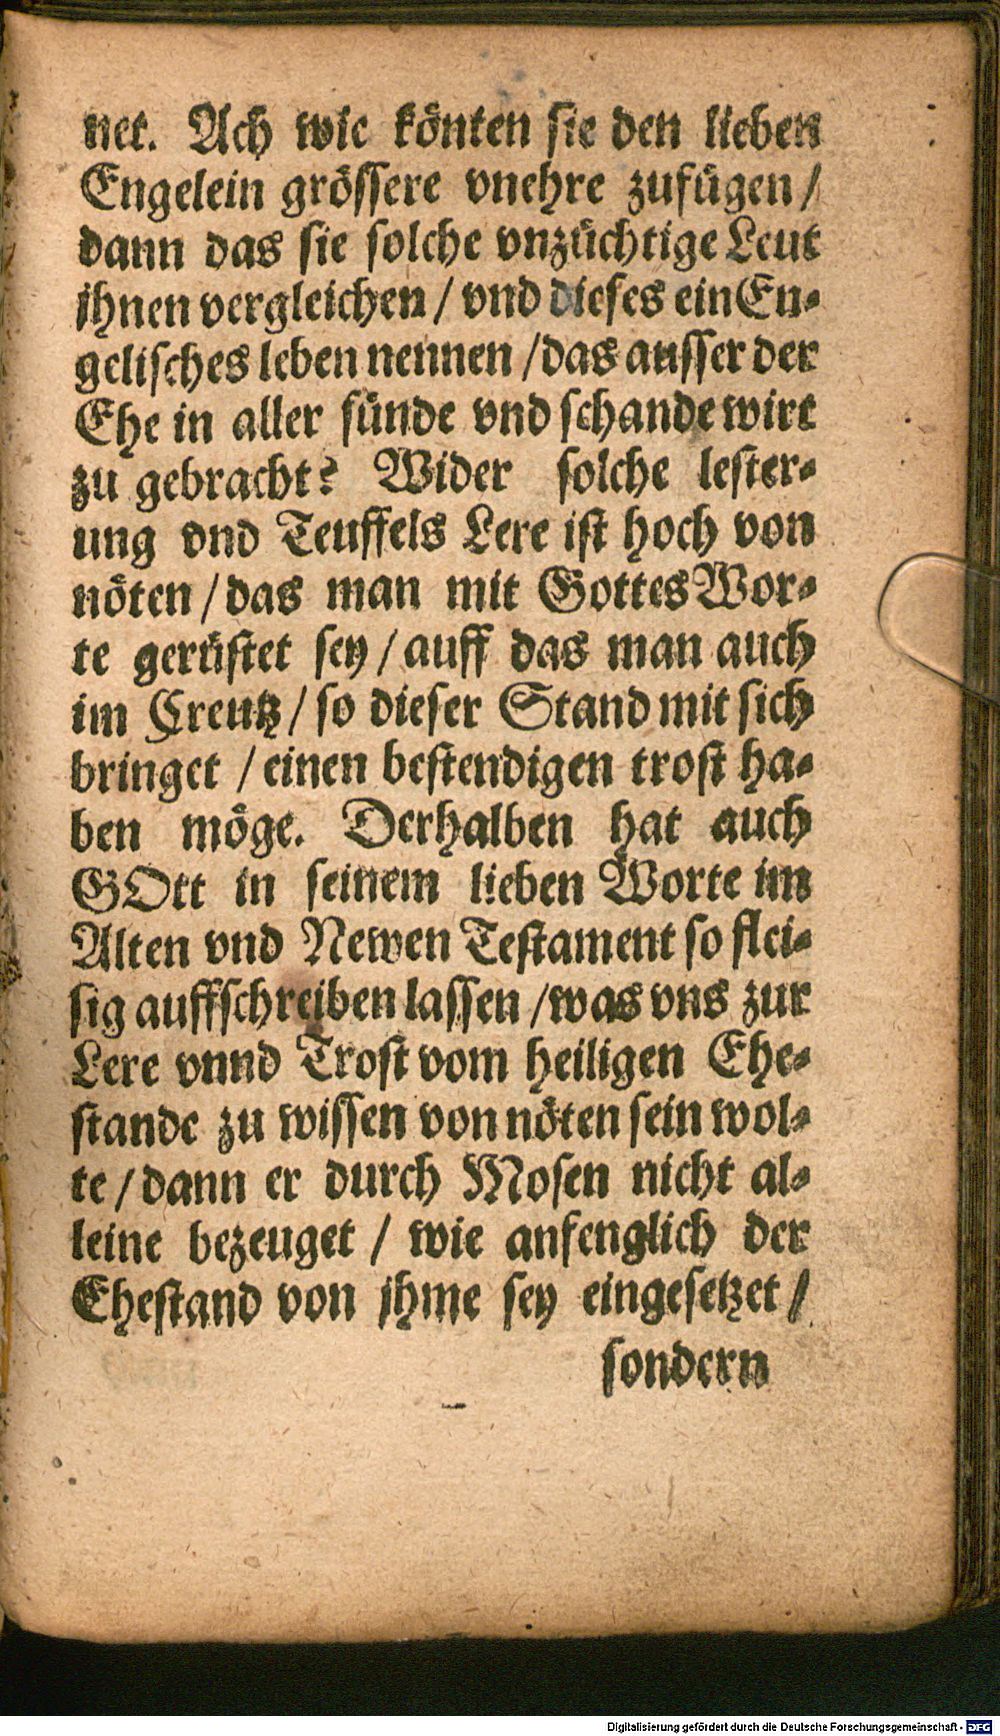 net. Ach wie könten sie den lieben
Engelein grössere vnehre zufügen /
dann das sie solche vnzüchtige Leut
jhnen vergleichen / vnd dieses ein En-
gelisches leben nennen / das ausser der
Ehe in aller sünde vnd schande wirt
zu gebracht? Wider solche lester-
ung vnd Teuffels Lere ist hoch von
nöten / das man mit Gottes Wor-
te gerüstet sey / auff das man auch
im Creutz / so dieser Stand mit sich
bringet / einen bestendigen trost ha-
ben möge. Derhalben hat auch
GOtt in seinem lieben Worte im
Alten vnd Newen Testament so flei-
sig auffschreiben lassen / was vns zur
Lere vnnd Trost vom heiligen Ehe-
stande zu wissen von nöten sein wol-
te / dann er durch Mosen nicht al-
leine bezeuget / wie anfenglich der
Ehestand von jhme sey eingesetzet /
sondern
Digitalisierung gefördert durch die Deutsche Forschungsgemeinschaft - DFG